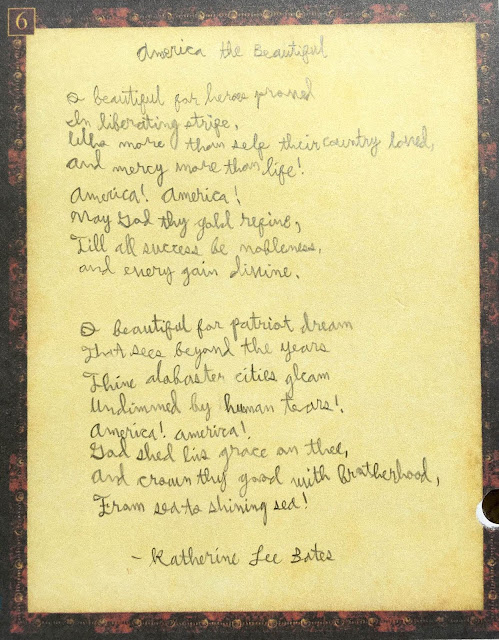 6
America the Beautiful
O beautiful for heroes proved
In liberating stripe,
Who more than self their country loved,
And mercy more than life!
America! America!
May God thy gold refine,
Till all success be nobleness,
and every gain divine.
O beautiful for patriot dream
That sees beyond the years
Thine alabaster cities gleam
Undimmed by human tears!
America! america!
God shed his grace on thee,
And crown thy good with Brotherhood,
From sea to shining sea!
- Katherine Lee Bates